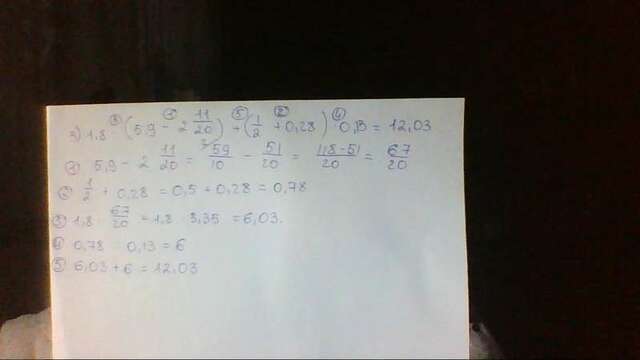 3) 1,8 (5,9 - 2 11/20) + (1/2 + 0,28) 0,13 = 12,03
① 5,9 - 2 11/20 = 59/10 - 51/20 = 118-51/20 = 67/20
② 1/2 + 0,28 = 0,5 + 0,28 = 0,78
③ 1,8 67/20 = 1,8 3,35 = 6,03.
④ 0,78 0,13 = 6
⑤ 6,03 + 6 = 12,03